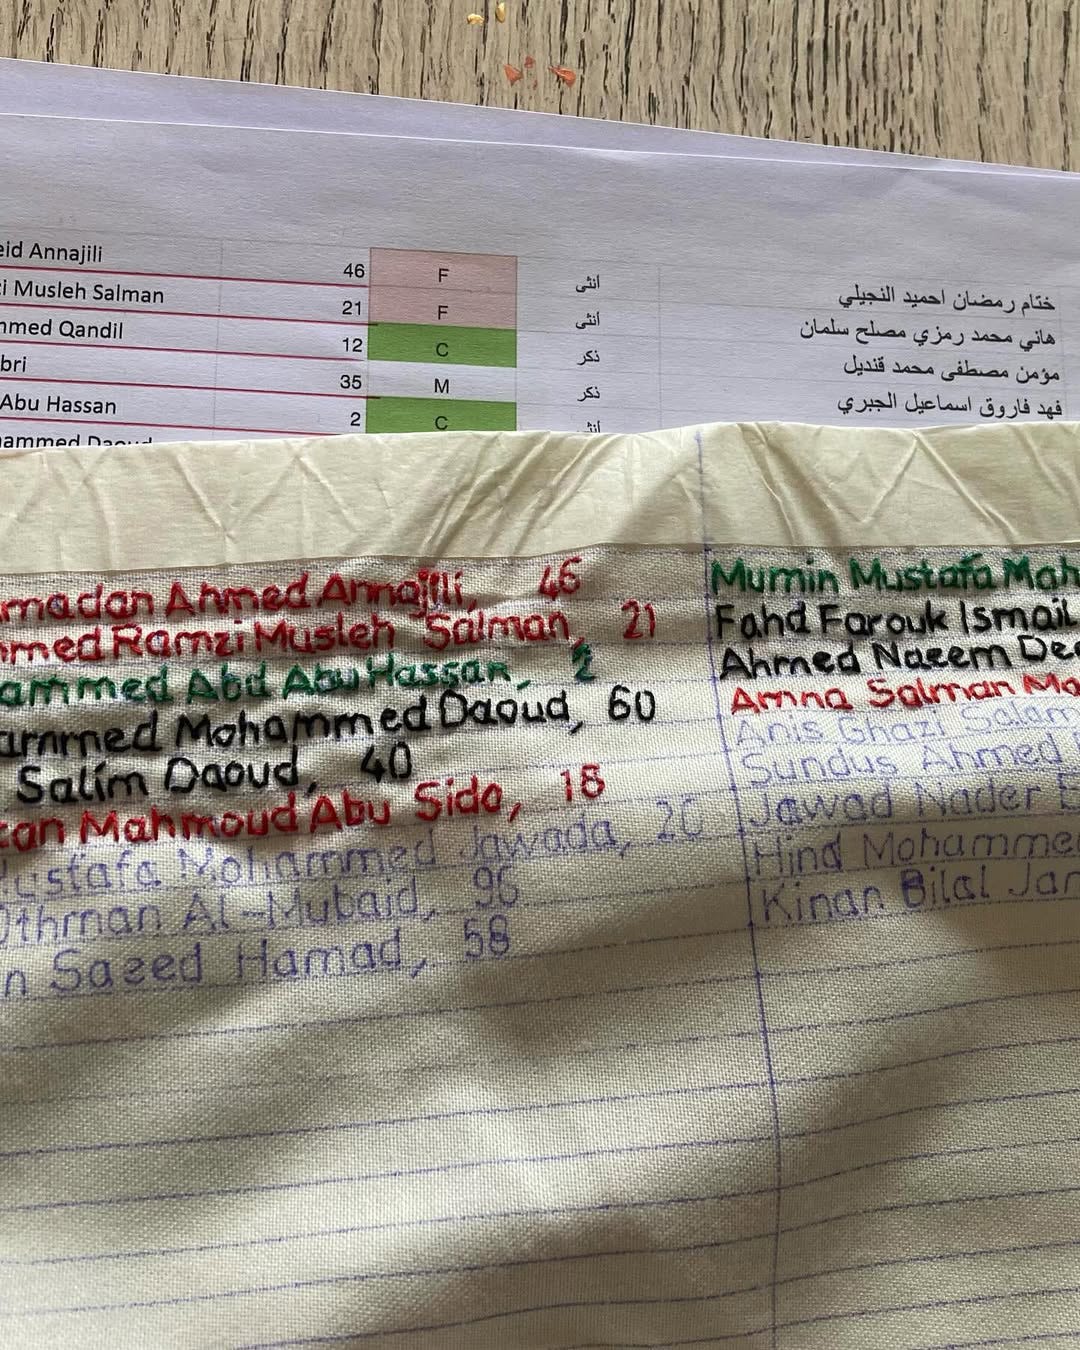 Annajili 46 F أنثى ختام رمضان احميد النجيلي
Musleh Salman 21 F أنثى هاني محمد رمزي مصلح سلمان
Qandil 12 C ذكر مؤمن مصطفى محمد قنديل
35 M ذكر فهد فاروق اسماعيل الجبري
Abu Hassan 2 C
Ahmed Annajili, 46
Ramzi Musleh Salman, 21
Abd Abu Hassan, 2
Mohammed Daoud, 60
Salim Daoud, 40
Mahmoud Abu Sido, 18
Mohammed Jawada, 26
Othman Al-Mubaid, 96
Saeed Hamad, 58
Mumin Mustafa
Fahd Farouk Ismail
Ahmed Naeem
Amna Salman
Anis Ghazi
Sundus Ahmed
Jawad Nader
Hind
Kinan Bilal